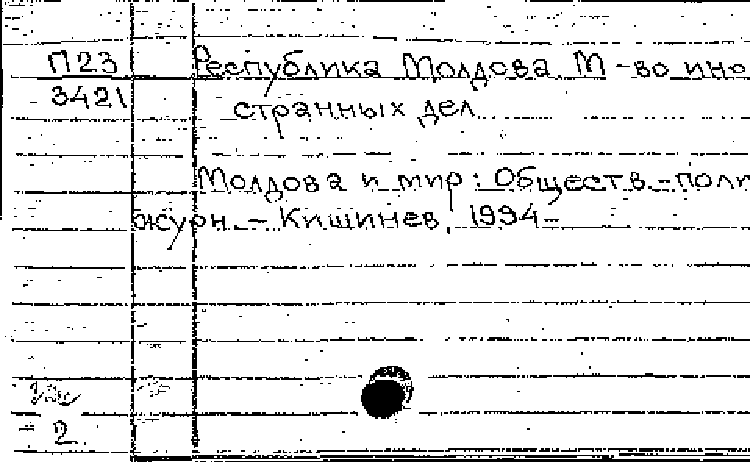 П23 Республика Молдова. М-во ино
3421 странных дел.
Молдова и мир: Обществ.-поли
журн. – Кишинев, 1994–
2